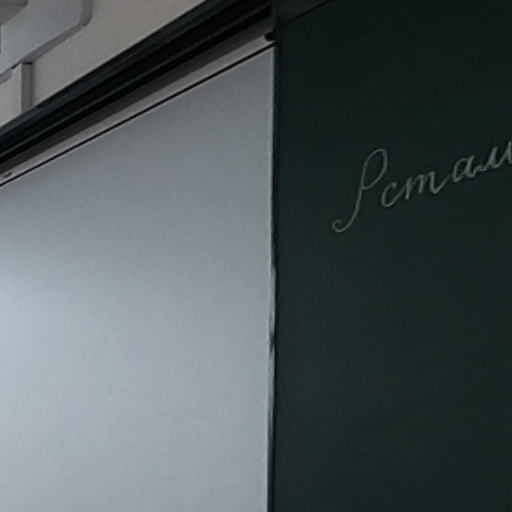 Рстам